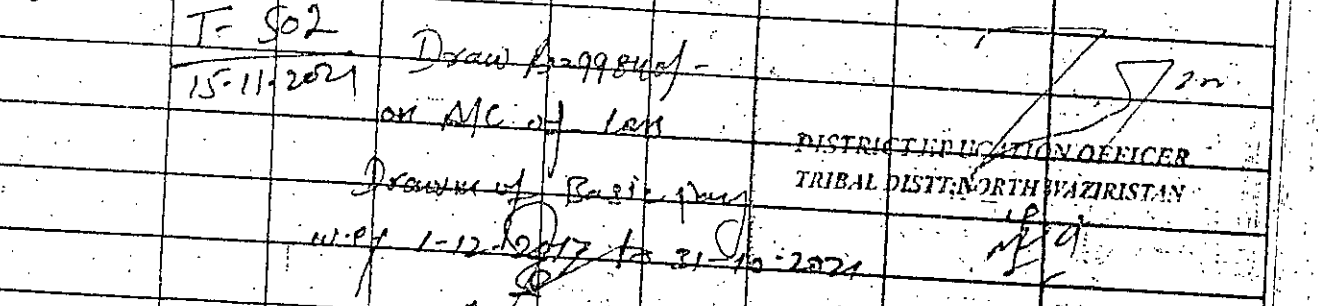 T- 502
15-11-2021
Draw Rs=99840/-
on A/C of less
Drawn of Basic pay
w.e.f 1-12-2017 to 31-10-2021
DISTRICT EDUCATION OFFICER
TRIBAL DISTT: NORTH WAZIRISTAN